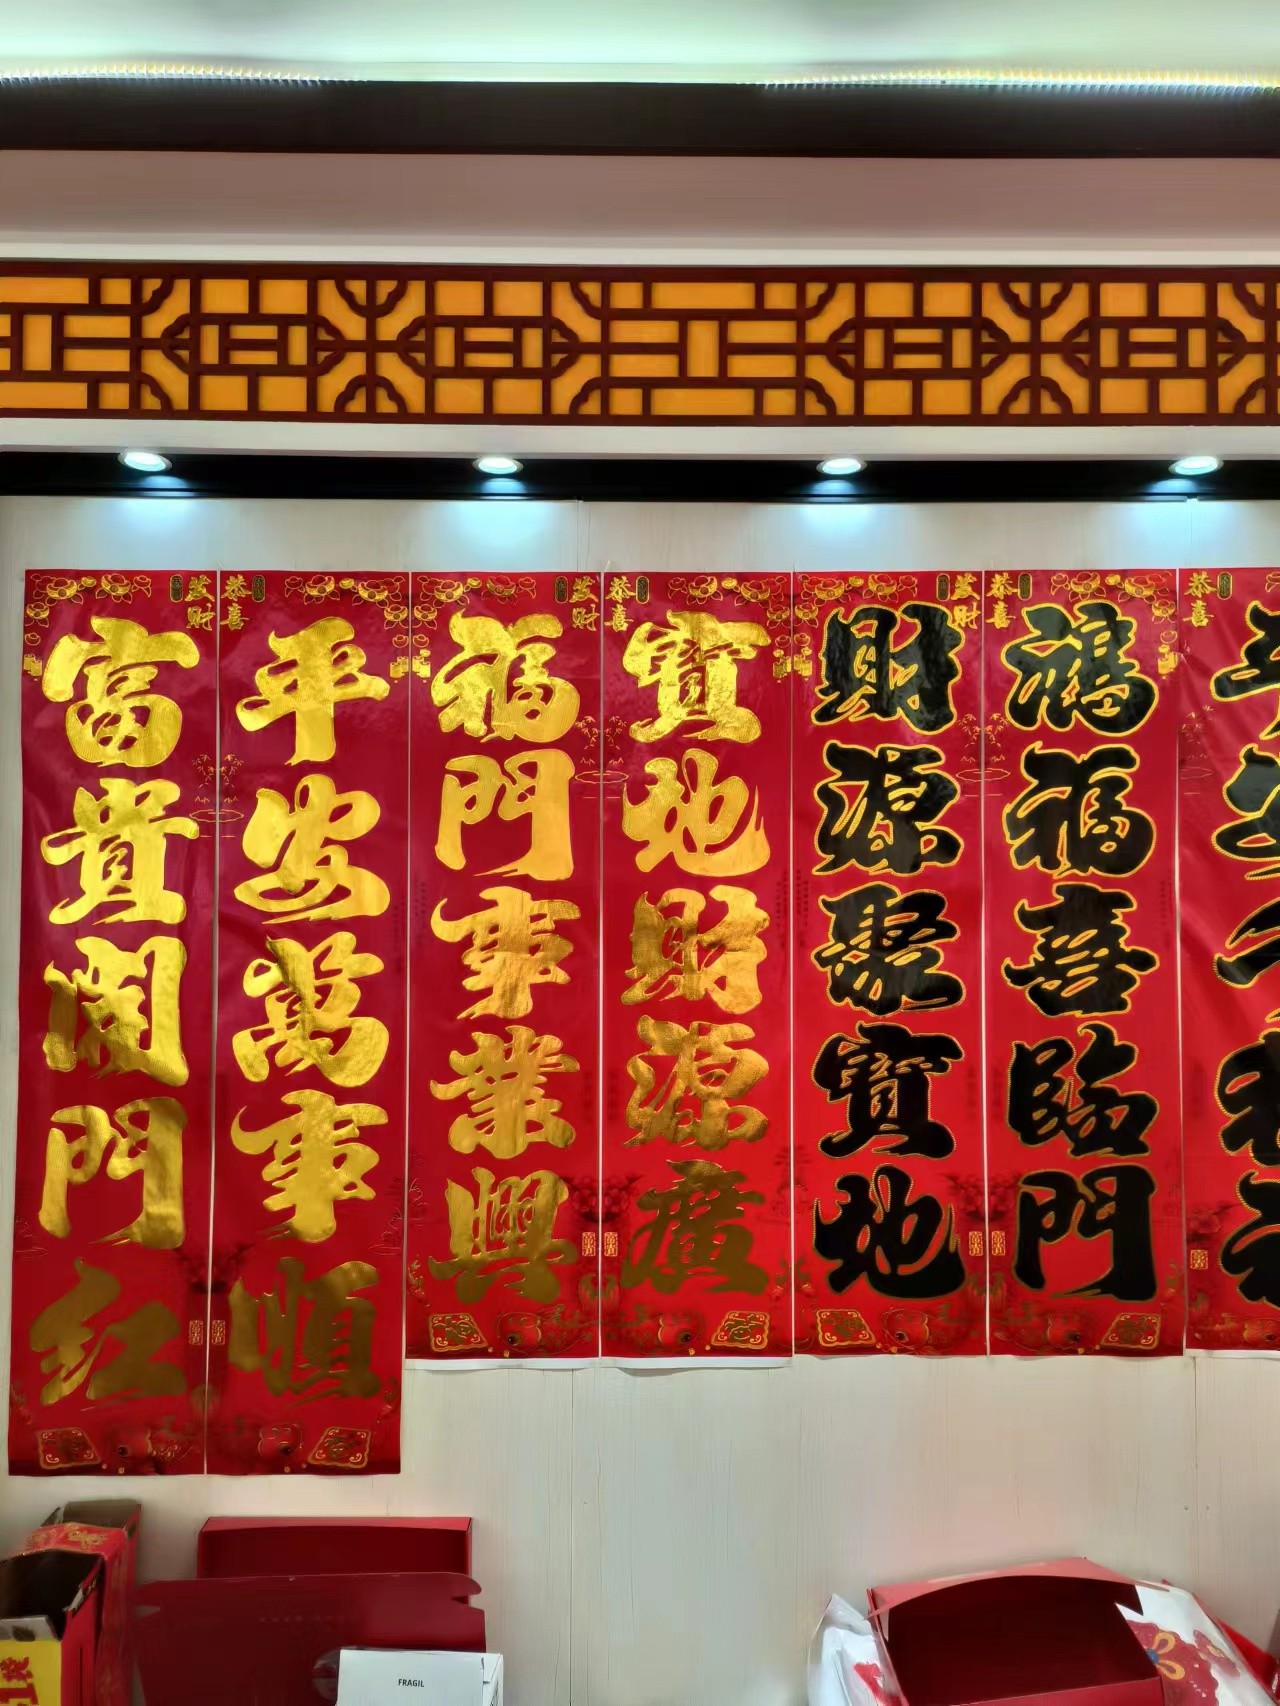 发财
富貴開門红
恭喜
平安萬事順
发财
福門事業興
恭喜
寶地財源廣
发财
財源聚寶地
恭喜
鴻福喜臨門
恭喜
FRAGIL